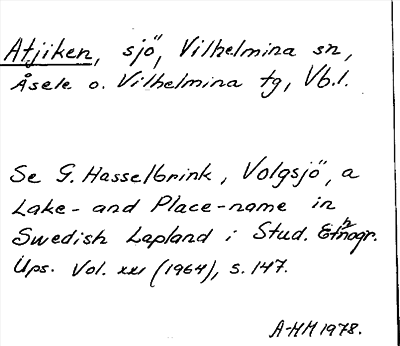 Atjiken, sjö, Vilhelmina sn,
Åsele o. Vilhelmina tg, Vb.l.
Se G. Hasselbrink, Volgsjö, a
Lake- and Place-name in
Swedish Lapland i Stud. Ethnogr.
Ups. Vol. xxi (1964), s. 147.
A-HM 1978.